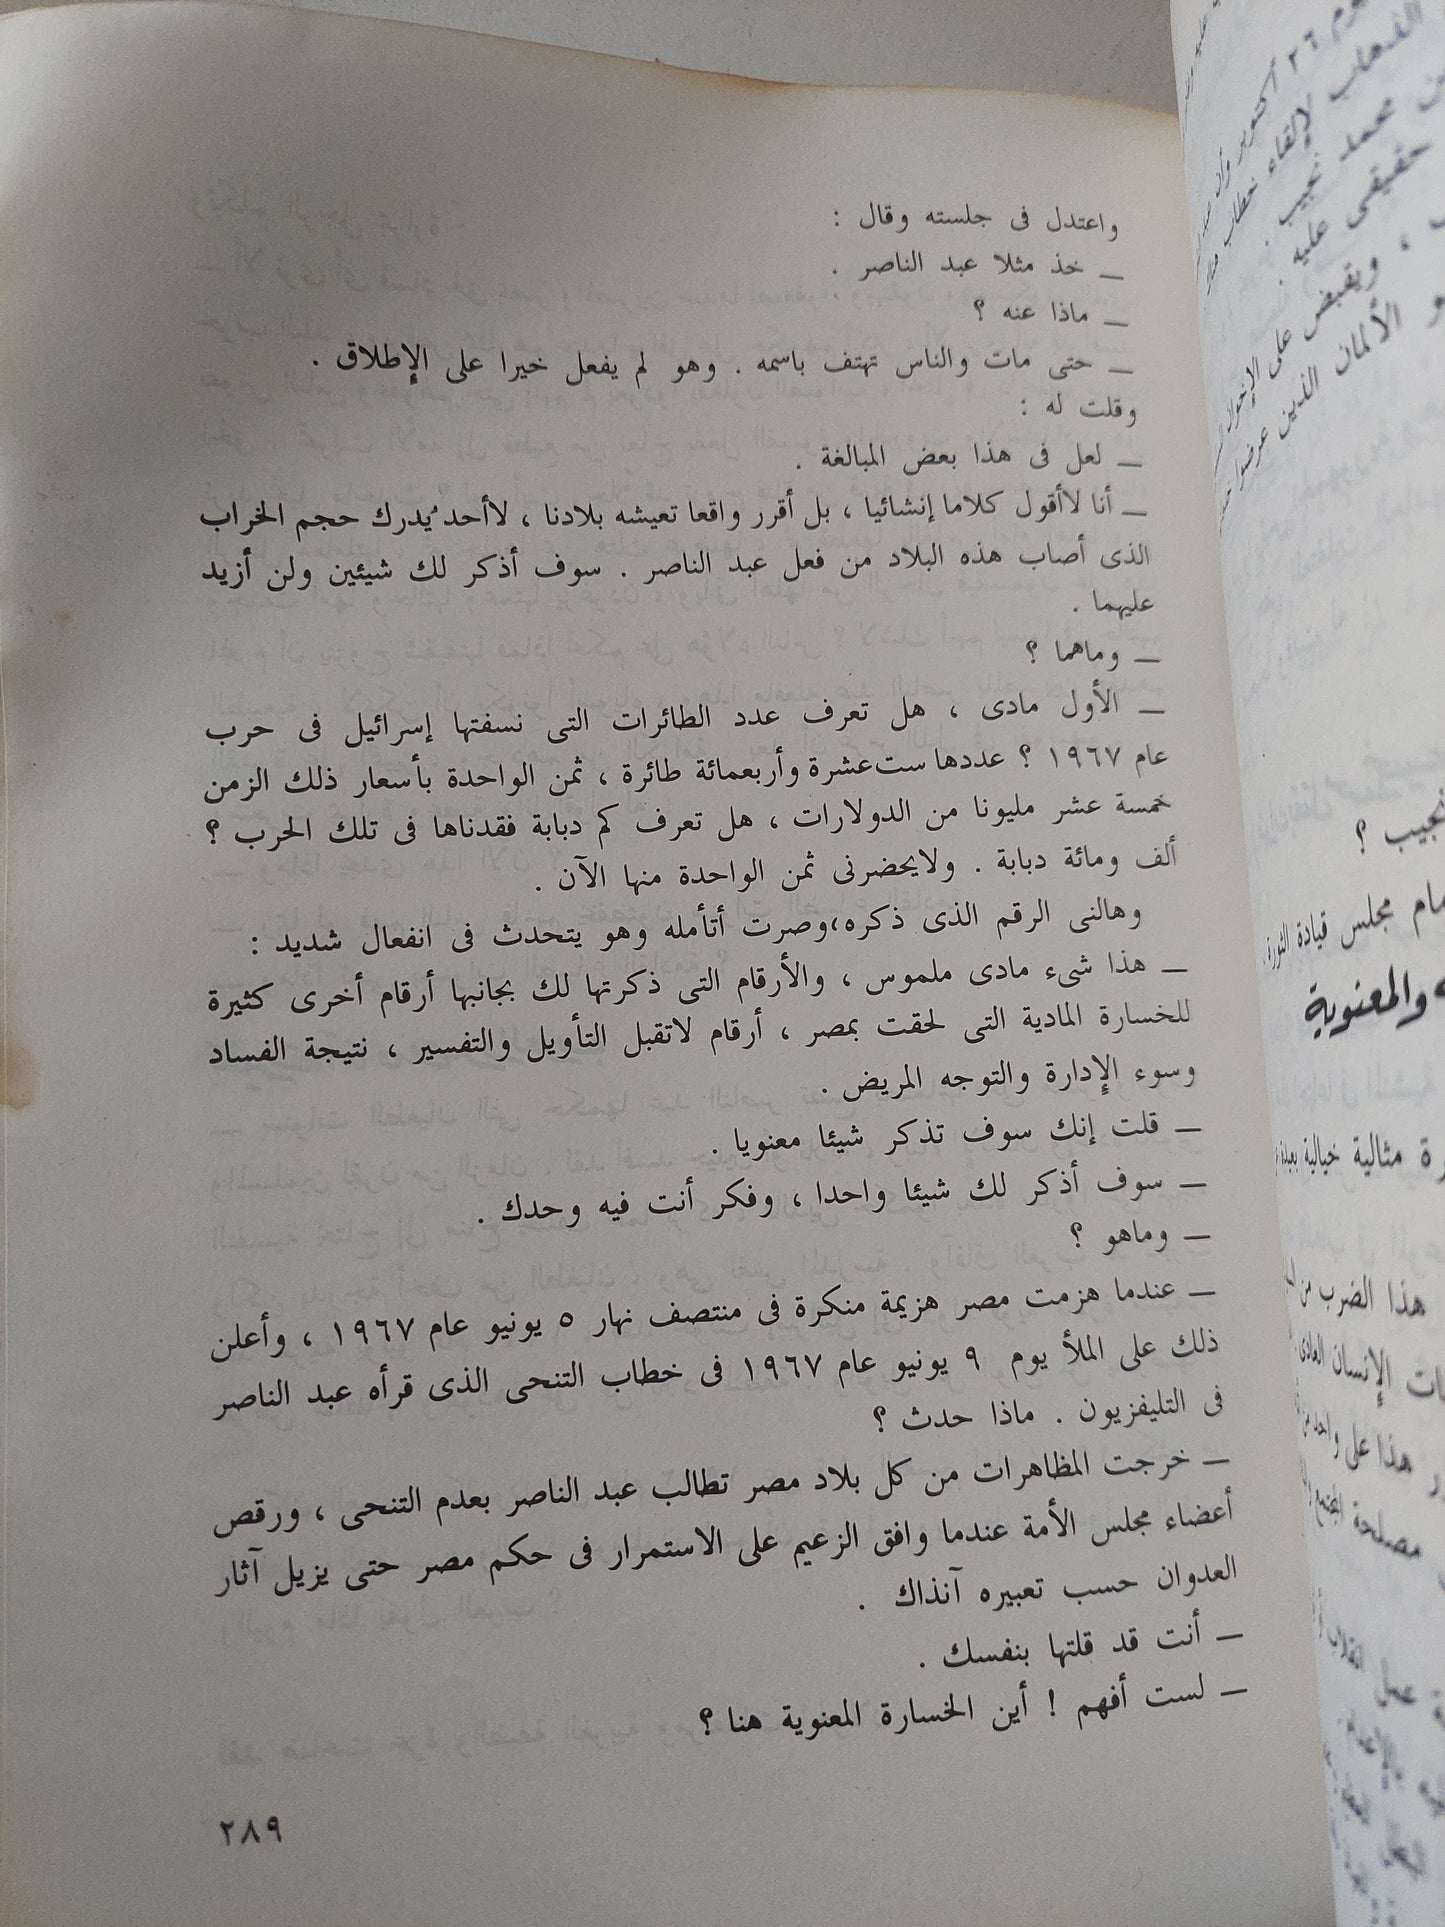 واعتدل فى جلسته وقال :
ــ خذ مثلا عبد الناصر .
ــ ماذا عنه ؟
ــ حتى مات والناس تهتف باسمه . وهو لم يفعل خيرا على الإطلاق .
وقلت له :
ــ لعل فى هذا بعض المبالغة .
ــ أنا لاأقول كلاما إنشائيا ، بل أقرر واقعا تعيشه بلادنا ، لاأحد يدرك حجم الخراب
الذى أصاب هذه البلاد من فعل عبد الناصر . سوف أذكر لك شيئين ولن أزيد
عليهما .
ــ وماهما ؟
ــ الأول مادى ، هل تعرف عدد الطائرات التى نسفتها إسرائيل فى حرب
عام ١٩٦٧ ؟ عددها ست عشرة وأربعمائة طائرة ، ثمن الواحدة بأسعار ذلك الزمن
خمسة عشر مليونا من الدولارات ، هل تعرف كم دبابة فقدناها فى تلك الحرب ؟
ألف ومائة دبابة . ولايحضرنى ثمن الواحدة منها الآن .
وهالنى الرقم الذى ذكره،وصرت أتأمله وهو يتحدث فى انفعال شديد :
ــ هذا شىء مادى ملموس ، والأرقام التى ذكرتها لك بجانبها أرقام أخرى كثيرة
للخسارة المادية التى لحقت بمصر ، أرقام لاتقبل التأويل والتفسير ، نتيجة الفساد
وسوء الإدارة والتوجه المريض .
ــ قلت إنك سوف تذكر شيئا معنويا .
ــ سوف أذكر لك شيئا واحدا ، وفكر أنت فيه وحدك .
ــ وماهو ؟
ــ عندما هزمت مصر هزيمة منكرة فى منتصف نهار ٥ يونيو عام ١٩٦٧ ، وأعلن
ذلك على الملأ يوم ٩ يونيو عام ١٩٦٧ فى خطاب التنحى الذى قرأه عبد الناصر
فى التليفزيون . ماذا حدث ؟
ــ خرجت المظاهرات من كل بلاد مصر تطالب عبد الناصر بعدم التنحى ، ورقص
أعضاء مجلس الأمة عندما وافق الزعيم على الاستمرار فى حكم مصر حتى يزيل آثار
العدوان حسب تعبيره آنذاك .
ــ أنت قد قلتها بنفسك .
ــ لست أفهم ! أين الخسارة المعنوية هنا ؟
٢٨٩
٢٦ أكتوبر وأن
الذهاب لإلقاء خطاب
محمد نجيب .
حقيقى عليه .
، ويقبض على الإخوان
الألمان الذين عرضوا
نجيب ؟
مجلس قيادة الثورة .
والمعنوية
مثالية خيالية بعيدة
هذا الضرب من
الإنسان العادى
هذا على واحد من
مصلحة المجتمع